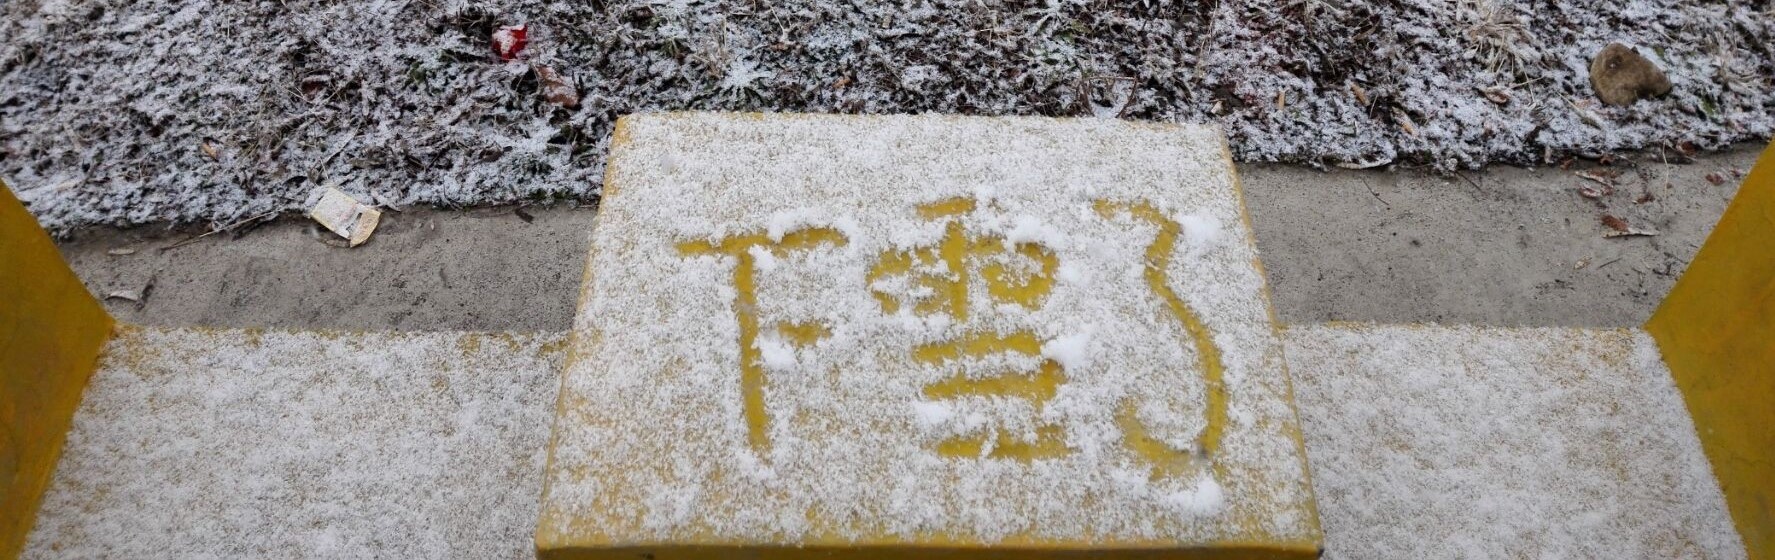 下雪了